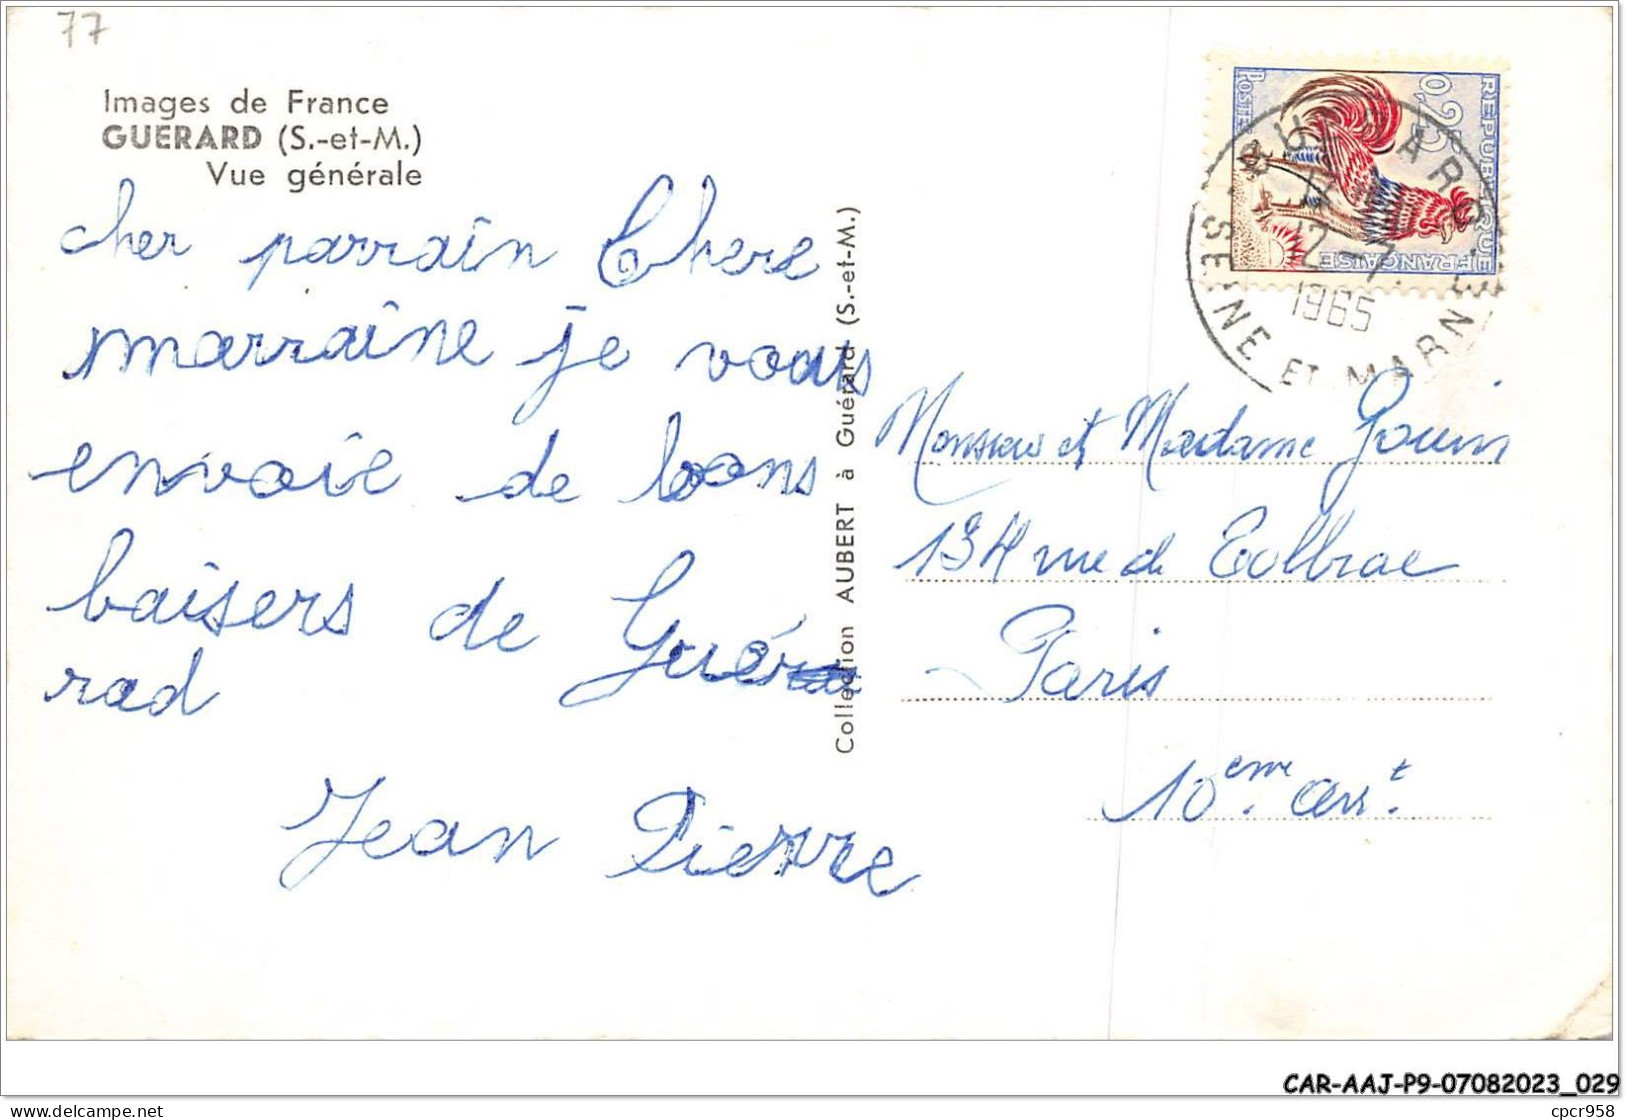 77
Images de France
GUERARD (S.-et-M.)
Vue générale
cher parrain Chere
marraine je vous
envoie de bons
baisers de Gué
rad
Jean Pierre
Collection AUBERT à Guérard (S.-et-M.)
REPUBLIQUE FRANÇAISE
0,25
POSTES
SEINE ET MARNE
1965
Monsieur et Madame Gouin
134 rue de Tolbiac
Paris
10eme. Arrt.
CAR-AAJ-P9-07082023_029
www.delcampe.net
cpcr958